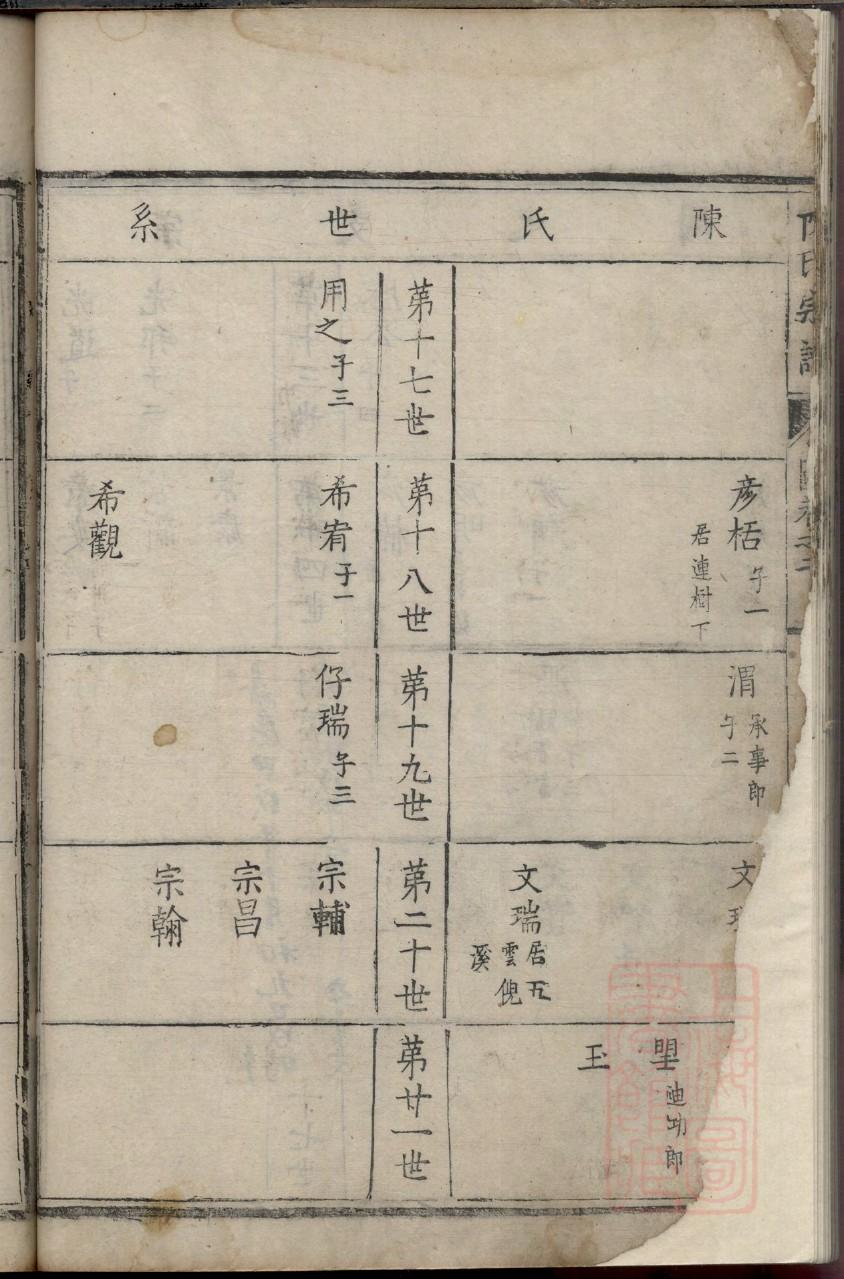 陳氏世系
彥栝子一
居連樹下
渭承事郎
子二
文
文瑞居五
雲倪
溪
垔迪功郎
玉
第十七世
第十八世
第十九世
第二十世
第廿一世
用之子三
希甯子一
希觀
仔瑞子三
宗輔
宗昌
宗翰